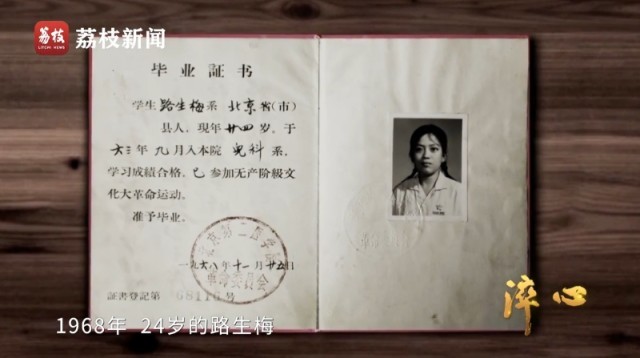 荔枝
荔枝新闻
毕业証书
学生路生梅系北京省(市)
县人,现年廿四岁。于
六三年九月入本院儿科系,
学习成绩合格,已参加无产阶级文
化大革命运动。
准予毕业。
一九六八年十一月廿五日
証書登記第 68110 号
淬心
1968年 24岁的路生梅